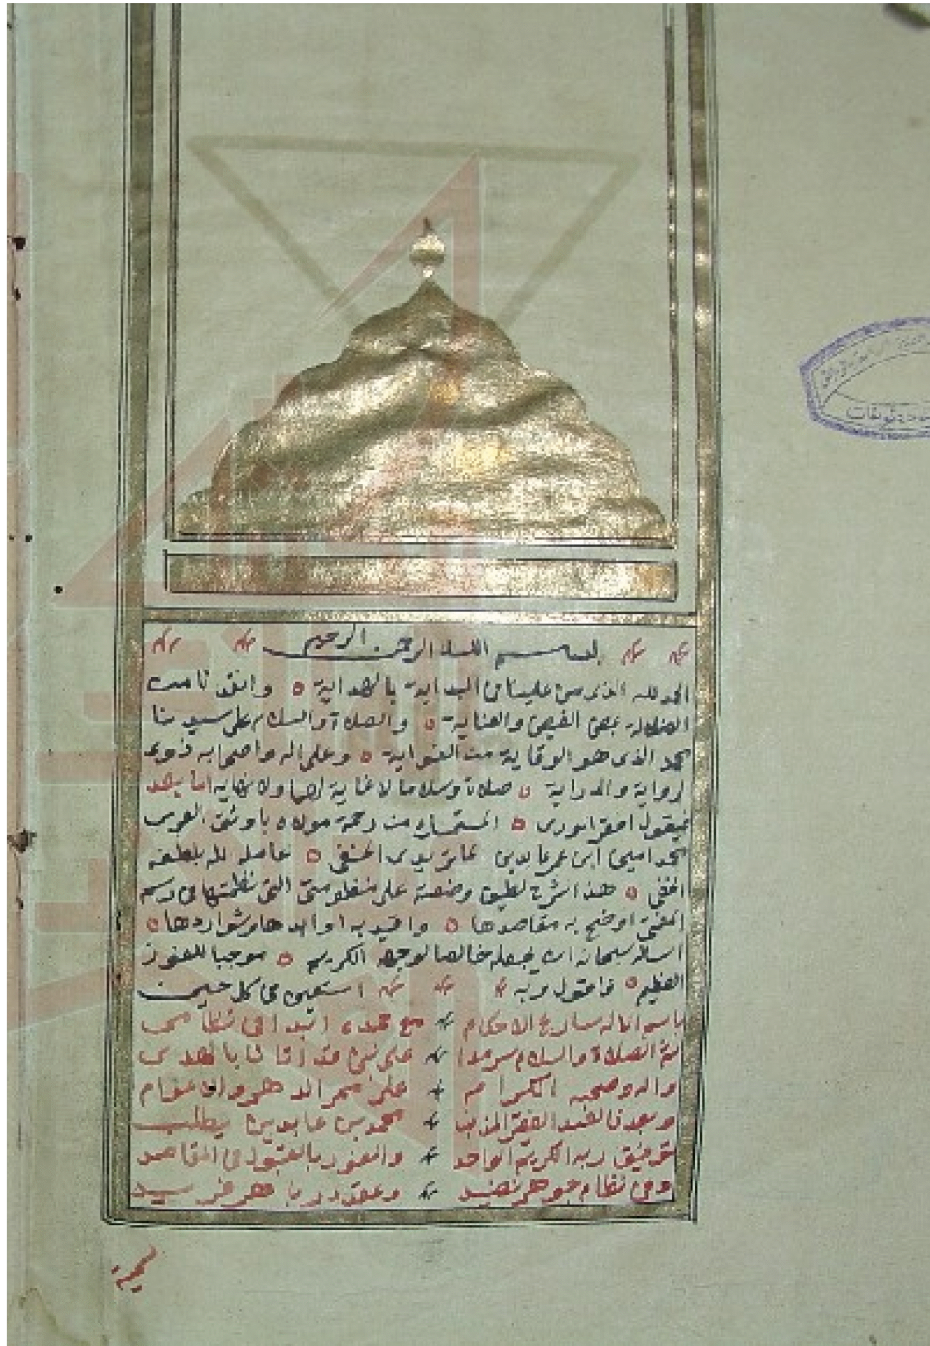 بسم الله الرحمن الرحيم
الحمد لله الذى من علينا فى البداية بالهداية ٥ وانقذنا من
الضلالة بمحض الفيض والعناية ٥ والصلاة والسلام على سيدنا
محمد الذى هو الوقاية من الغواية ٥ وعلى اله واصحابه ذوى
الرواية والدراية ٥ صلاة وسلاما لا غاية لهما ولا نهاية اما بعد
فيقول احقر الورى ٥ المستمسك من رحمة مولاه باوثق العرى
محمد امين ابن عمر عابدين الماتريدى الحنفى ٥ عامله الله بلطفه
الخفى ٥ هذا شرح لطيف وضعته على منظومتى التى نظمتها فى رسم
المفتى اوضح به مقاصدها ٥ واقيد به اوابدها وشواردها ٥
اسأله سبحانه ان يجعله خالصا لوجهه الكريم ٥ موجبا للفوز
العظيم ٥ فاقول وبه استعين فى كل حين
باسم الاله شارع الاحكام مع حمده ابدا فى نظامى
ثم الصلاة والسلام سرمدا على نبى قد اتانا بالهدى
واله وصحبه الكرام على ممر الدهر والاعوام
وبعد فالعبد الفقير المذنب محمد بن عابدين يطلب
توفيق ربه الكريم الواحد والفوز بالقبول فى المقاصد
وفى نظام جوهر نضيد وعقد در باهر فريد